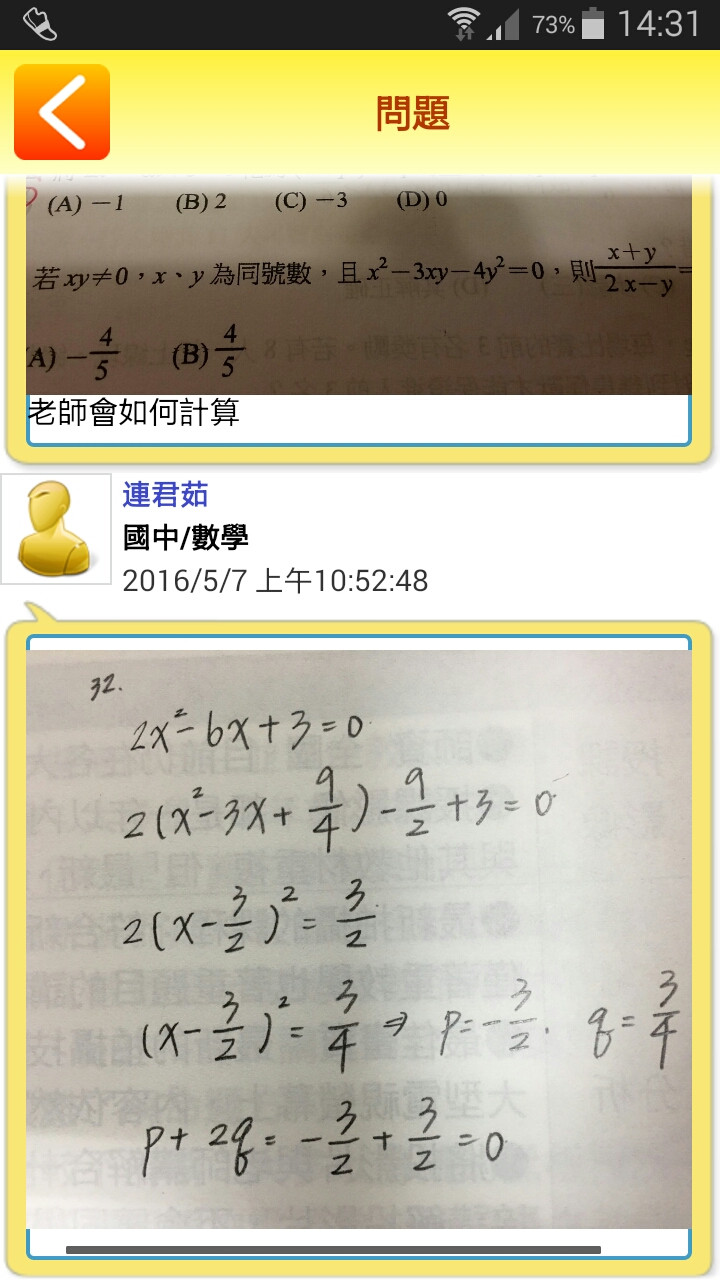 73% 14:31
問題
(A) −1 (B) 2 (C) −3 (D) 0
若 xy≠0，x、y 為同號數，且 x²−3xy−4y²=0，則 (x+y)/(2x−y) =
(A) −4/5 (B) 4/5
老師會如何計算
連君茹
國中/數學
2016/5/7 上午10:52:48
32.
2x²−6x+3=0
2(x²−3x+9/4)−9/2+3=0
2(x−3/2)²=3/2
(x−3/2)²=3/4 ⇒ p=−3/2. q=3/4
p+2q=−3/2+3/2=0